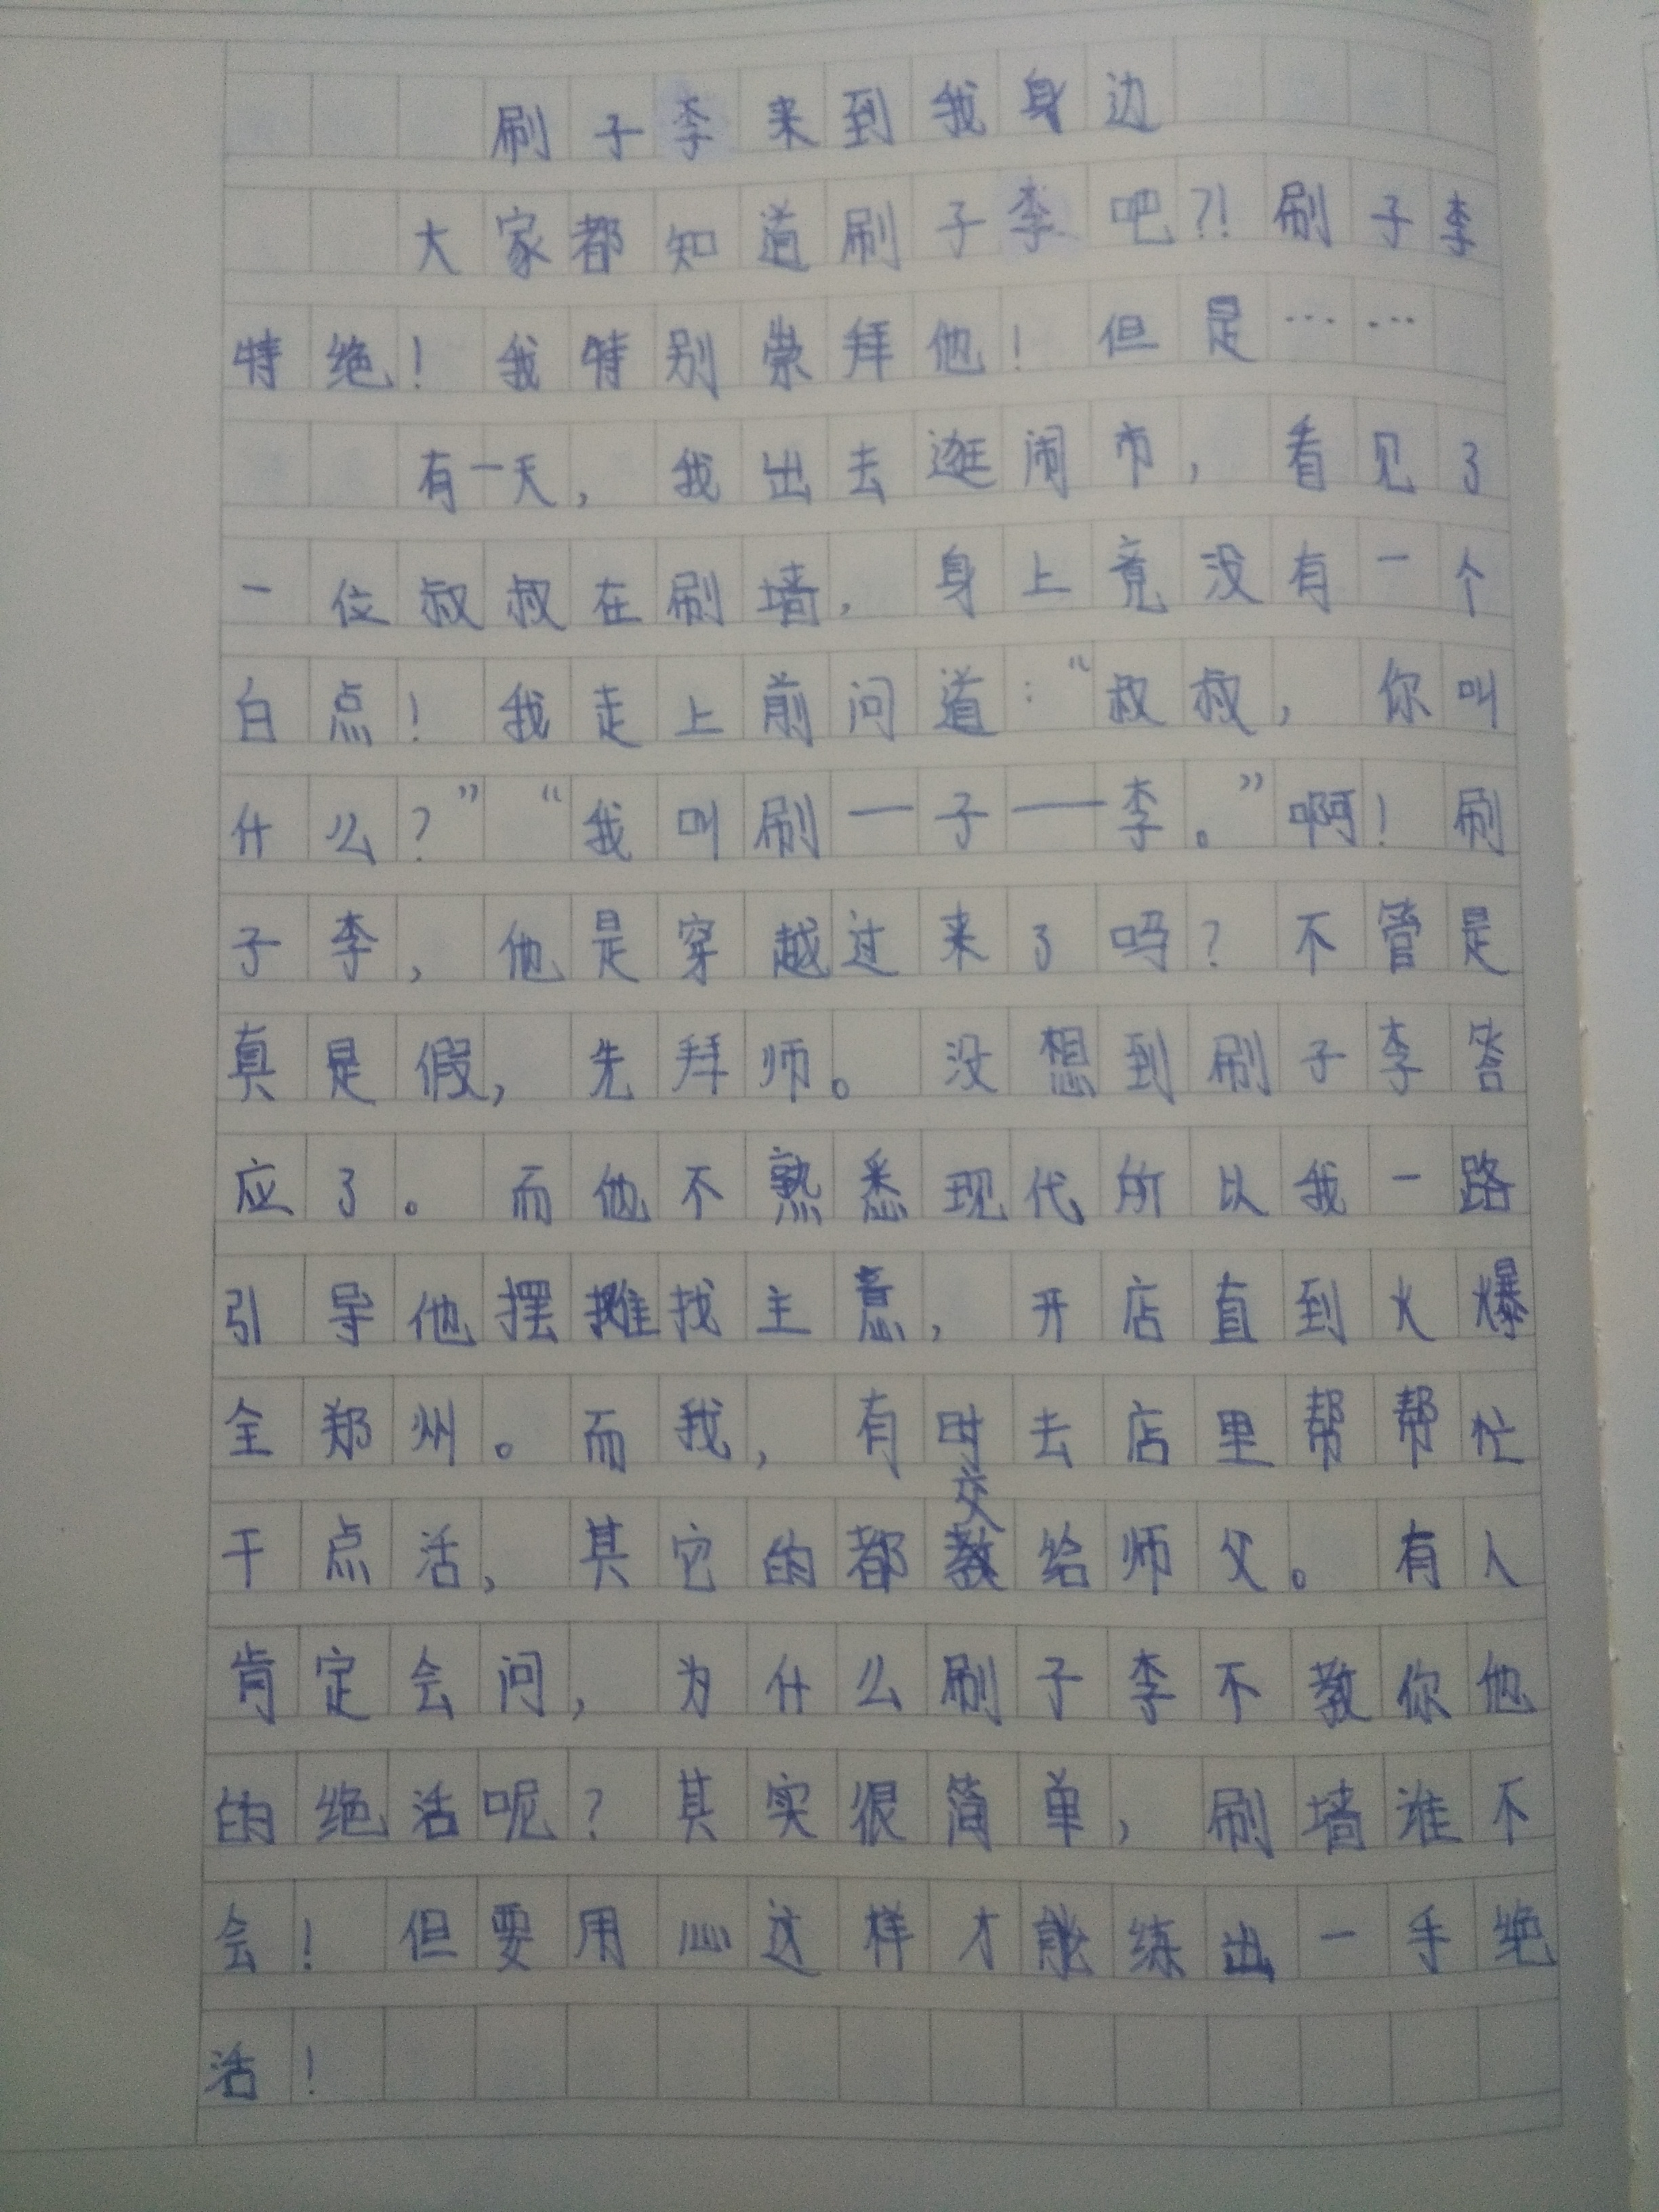 刷子李来到我身边
大家都知道刷子李吧?!刷子李
特绝!我特别崇拜他!但是……
有一天,我出去逛闹市,看见了
一位叔叔在刷墙,身上竟没有一个
白点!我走上前问道:“叔叔,你叫
什么?”“我叫刷—子—李。”啊!刷
子李,他是穿越过来了吗?不管是
真是假,先拜师。没想到刷子李答
应了。而他不熟悉现代所以我一路
引导他摆摊找主意,开店直到火爆
全郑州。而我,有时去店里帮帮忙
干点活,其它的都交给师父。有人
肯定会问,为什么刷子李不教你他
的绝活呢?其实很简单,刷墙谁不
会!但要用心这样才能练出一手绝
活!